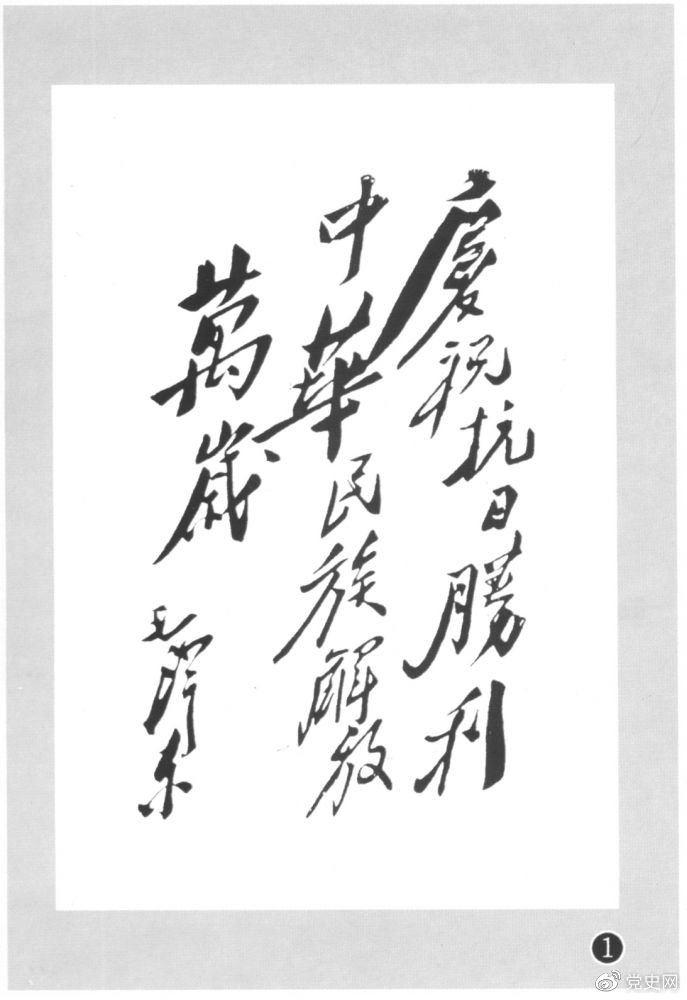 慶祝抗日勝利
中華民族解放
萬歲
毛澤东
1
党史网